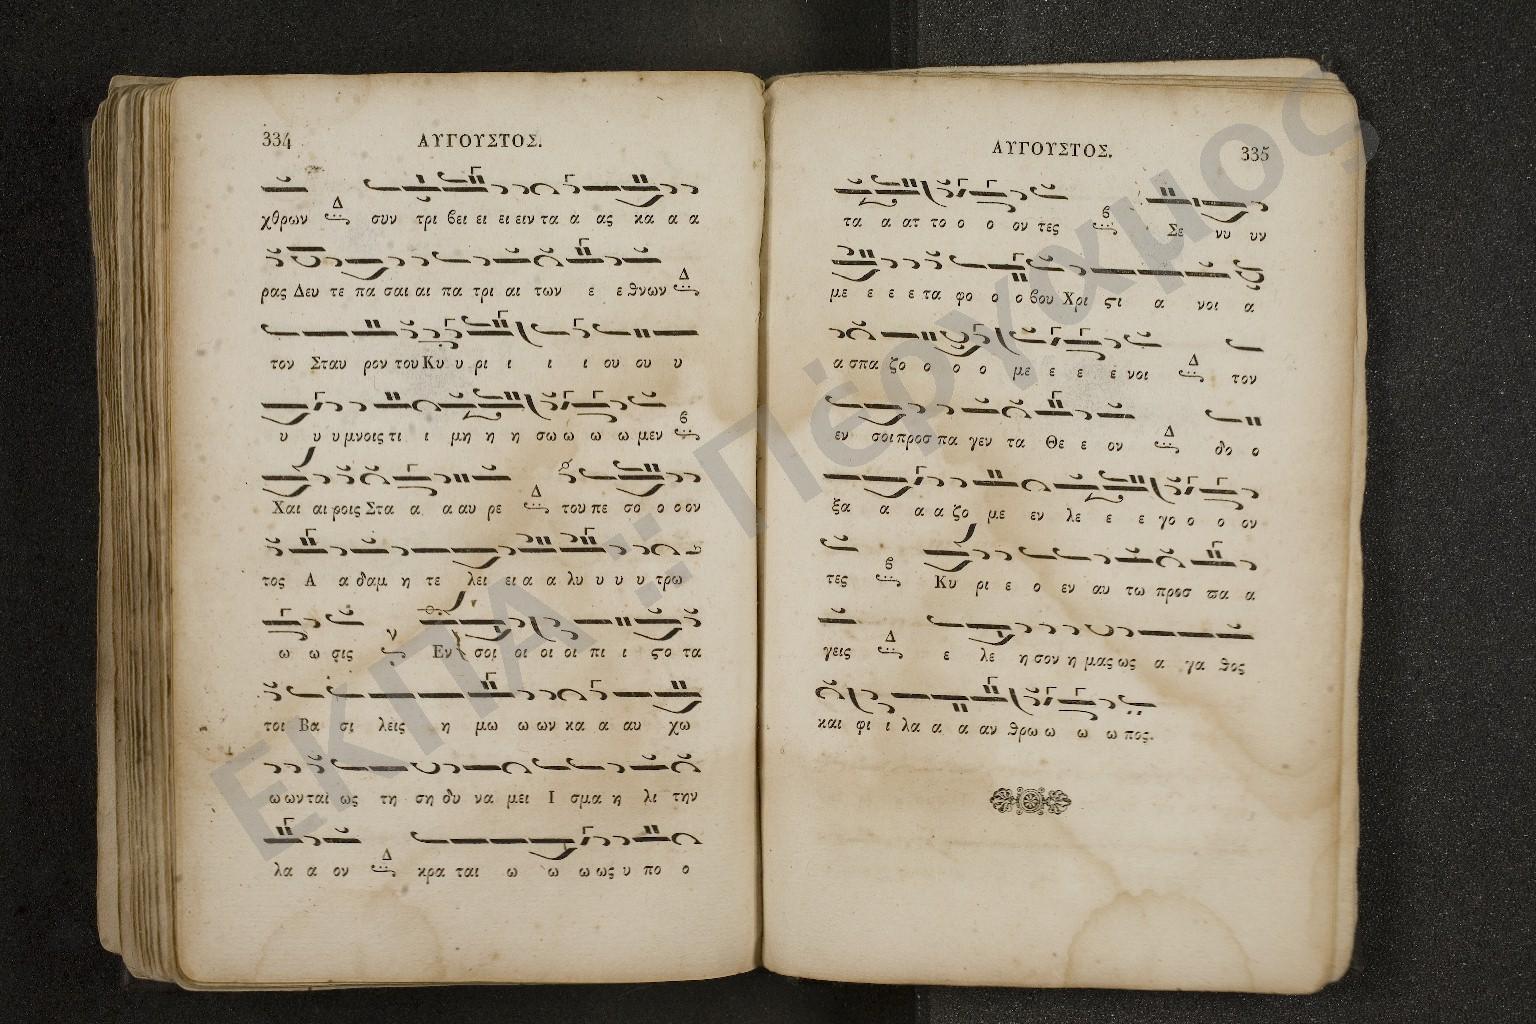 334
ΑΥΓΟΥΣΤΟΣ.
χθρων Δ συν τρι βει ει ει ειν τα α ας κα α α
ρας Δευ τε πα σαι αι πα τρι αι των ε ε θνων Δ
τον Σταυ ρον του Κυ υ ρι ι ι ι ου ου υ
υ υ υ μνοις τι ι μη η η σω ω ω ω μεν β
Χαι αι ροις Στα α α αυ ρε Δ του πε σο ο ο ον
τος Α α δαμ η τε λει ει α α λυ υ υ υ τρω
ω ω σις ν Εν σοι οι οι οι πι ι ςο τα
τοι Βα σι λεις η μω ω ων κα α αυ χω
ω ων ται ως τη ση δυ να μει Ι σμα η λι την
λα α ον Δ κρα ται ω ω ω ως υ πο ο
ΑΥΓΟΥΣΤΟΣ.
335
τα α ατ το ο ο ον τες β Σε νυ υν
με ε ε ε τα φο ο ο βου Χρι ςι α νοι α
α σπα ζο ο ο ο με ε ε ε νοι Δ τον
εν σοι προσ πα γεν τα Θε ε ον Δ δο ο
ξα α α α ζο με εν λε ε ε γο ο ο ον
τες β Κυ ρι ε ο εν αυ τω προσ πα α
γεις Δ ε λε η σον η μας ως α γα θος
και φι ι λα α α αν θρω ω ω ω πος.
ΕΚΠΑ :: Πέργαμος